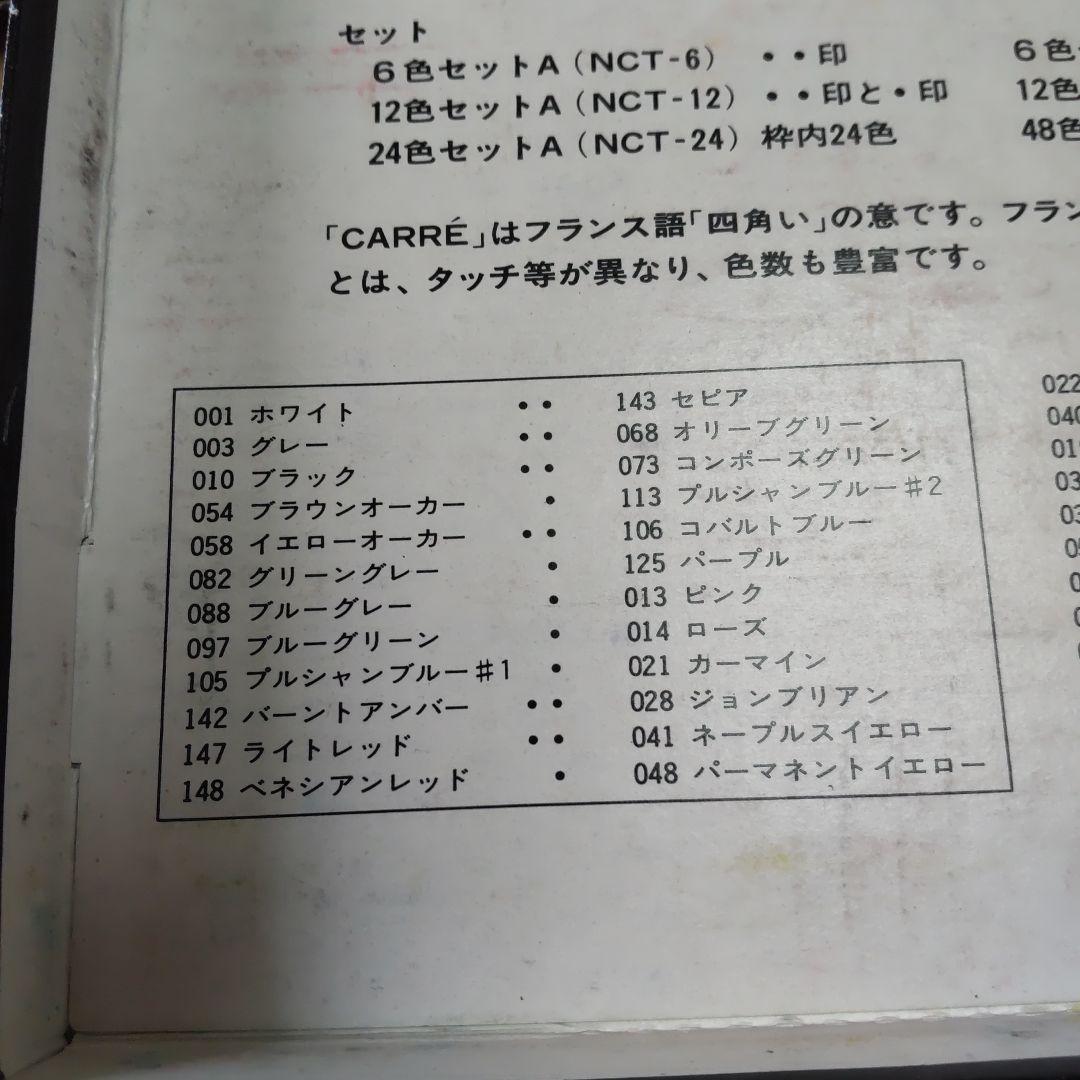 セット
6色セットA(NCT-6) ・・印 6色
12色セットA(NCT-12) ・・印と・印 12色
24色セットA(NCT-24) 枠内24色 48色
「CARRÉ」はフランス語「四角い」の意です。フラン
とは、タッチ等が異なり、色数も豊富です。
001 ホワイト ・・ 143 セピア 022
003 グレー ・・ 068 オリーブグリーン 040
010 ブラック ・・ 073 コンポーズグリーン
054 ブラウンオーカー ・ 113 プルシャンブルー#2
058 イエローオーカー ・・ 106 コバルトブルー
082 グリーングレー ・ 125 パープル
088 ブルーグレー ・ 013 ピンク
097 ブルーグリーン ・ 014 ローズ
105 プルシャンブルー#1 ・ 021 カーマイン
142 バーントアンバー ・・ 028 ジョンブリアン
147 ライトレッド ・・ 041 ネープルスイエロー
148 ベネシアンレッド ・ 048 パーマネントイエロー